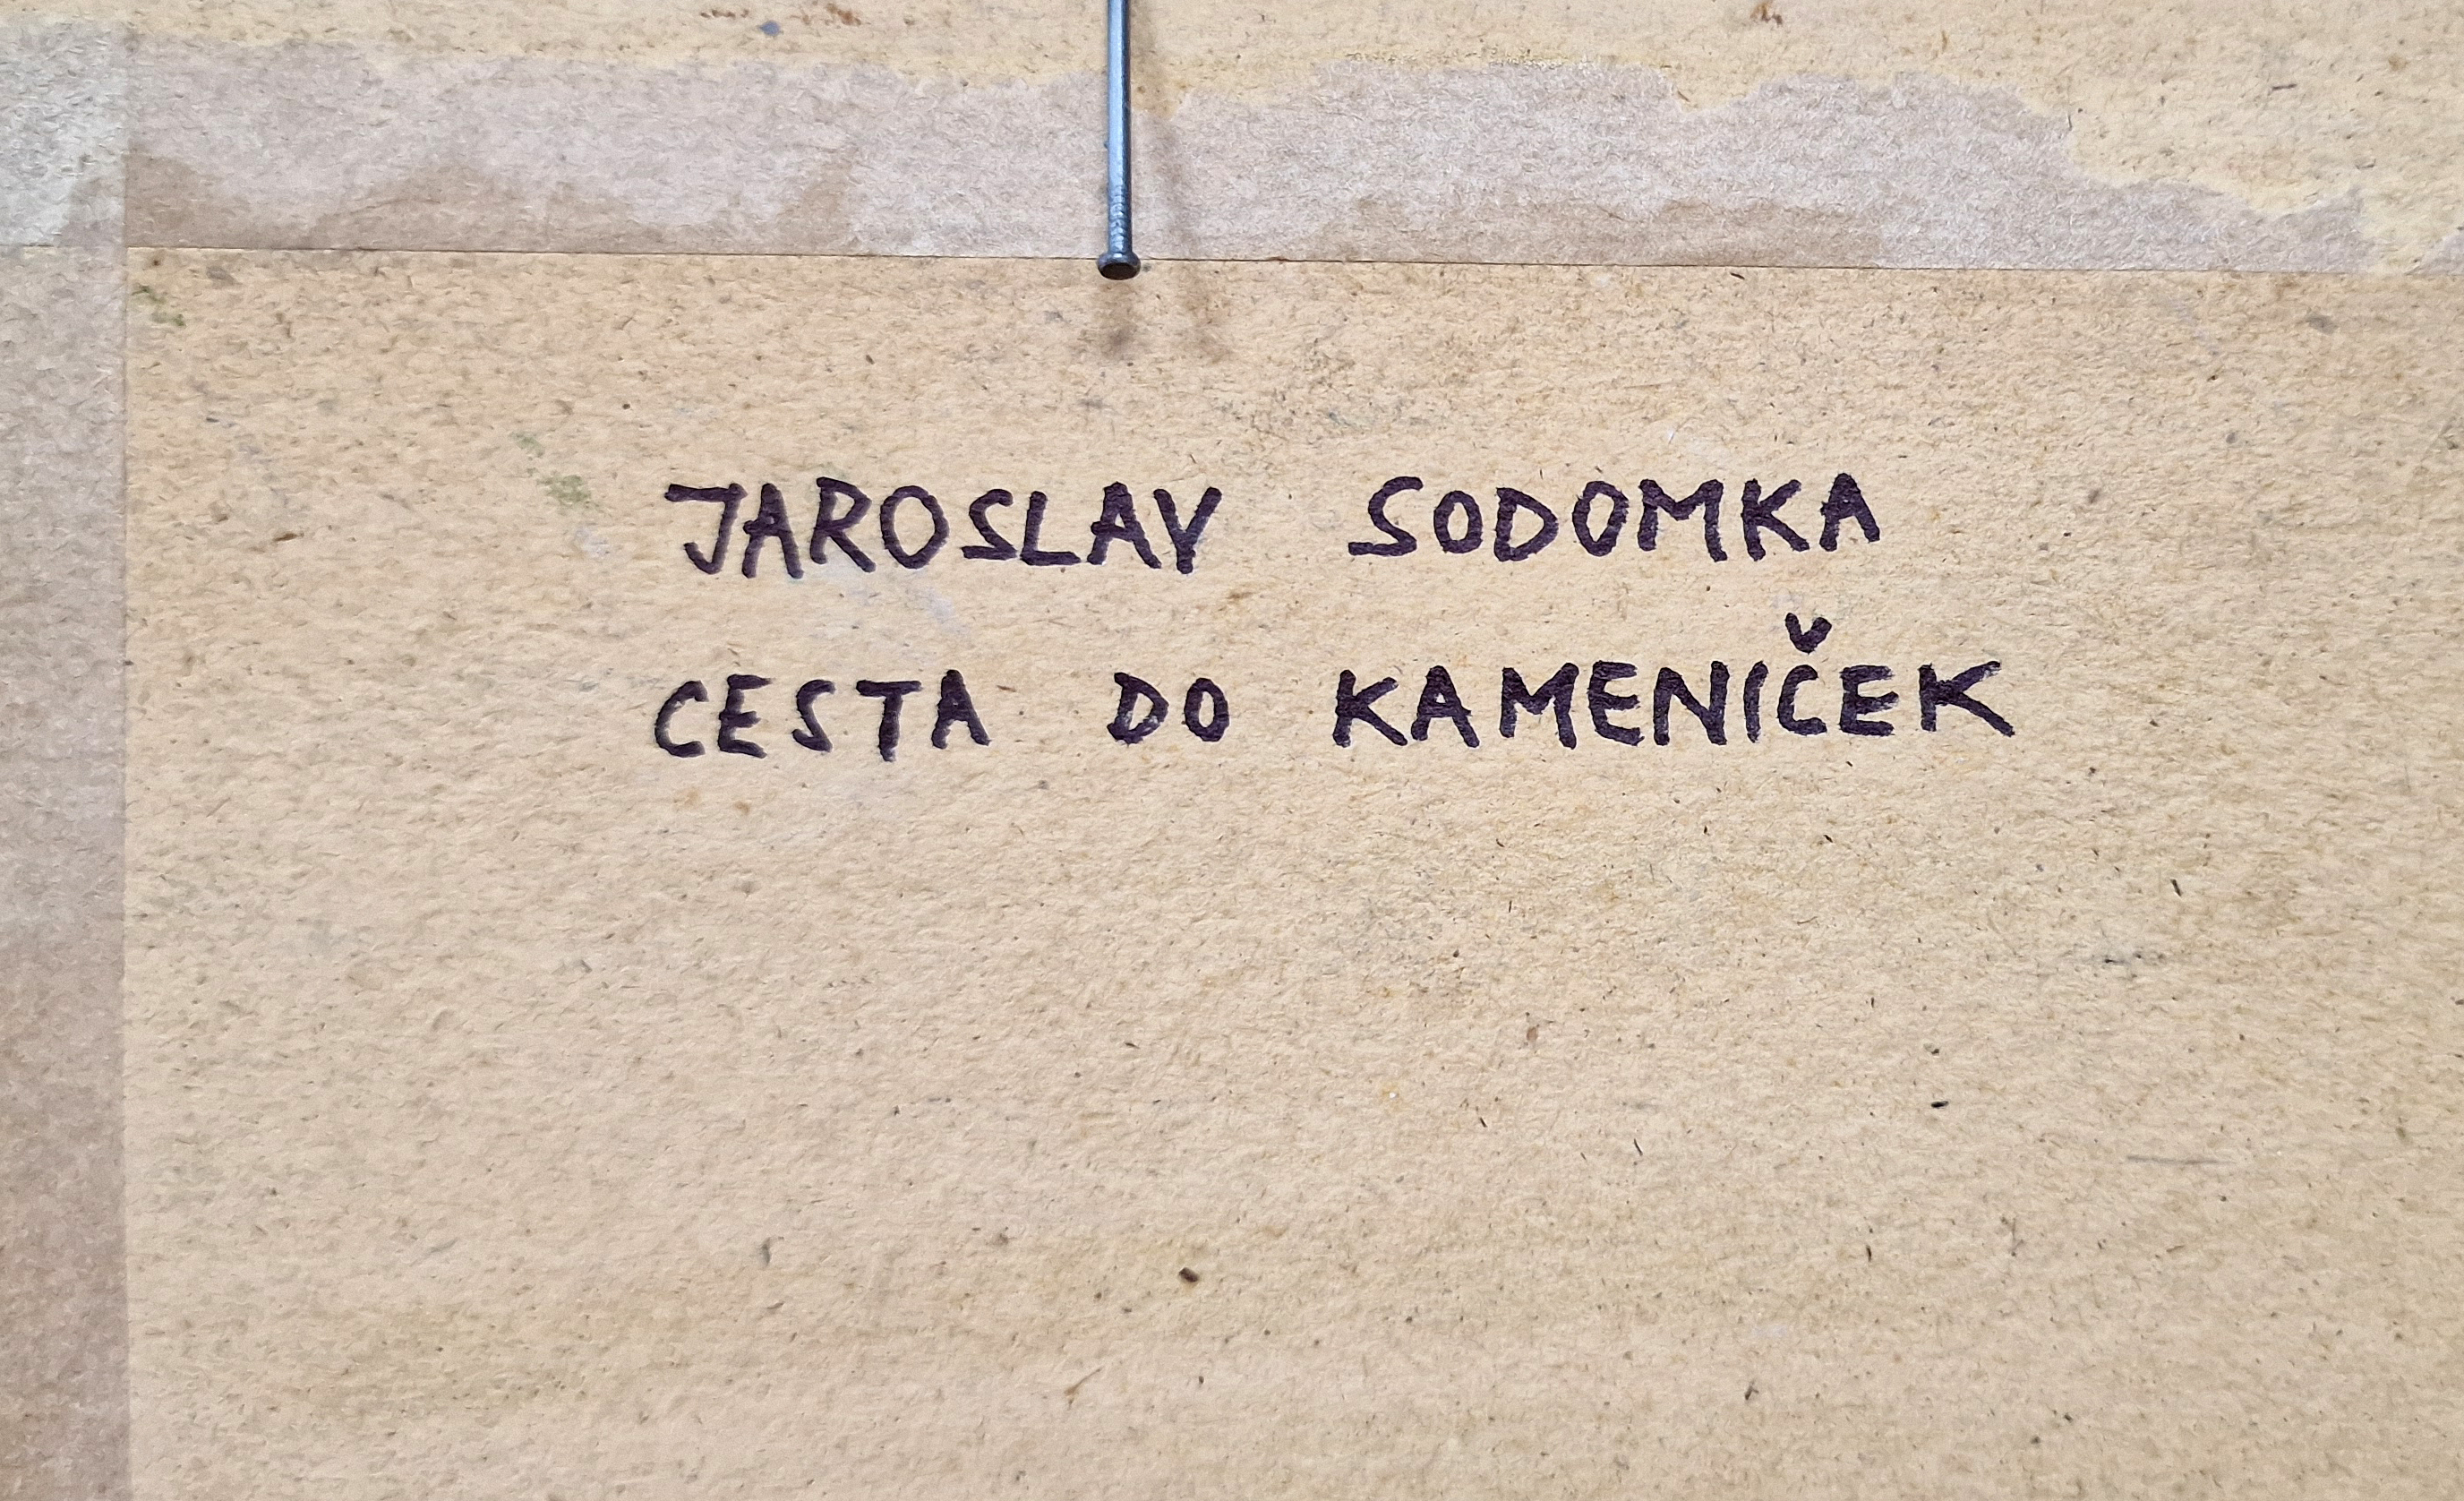 JAROSLAV SODOMKA
CESTA DO KAMENIČEK